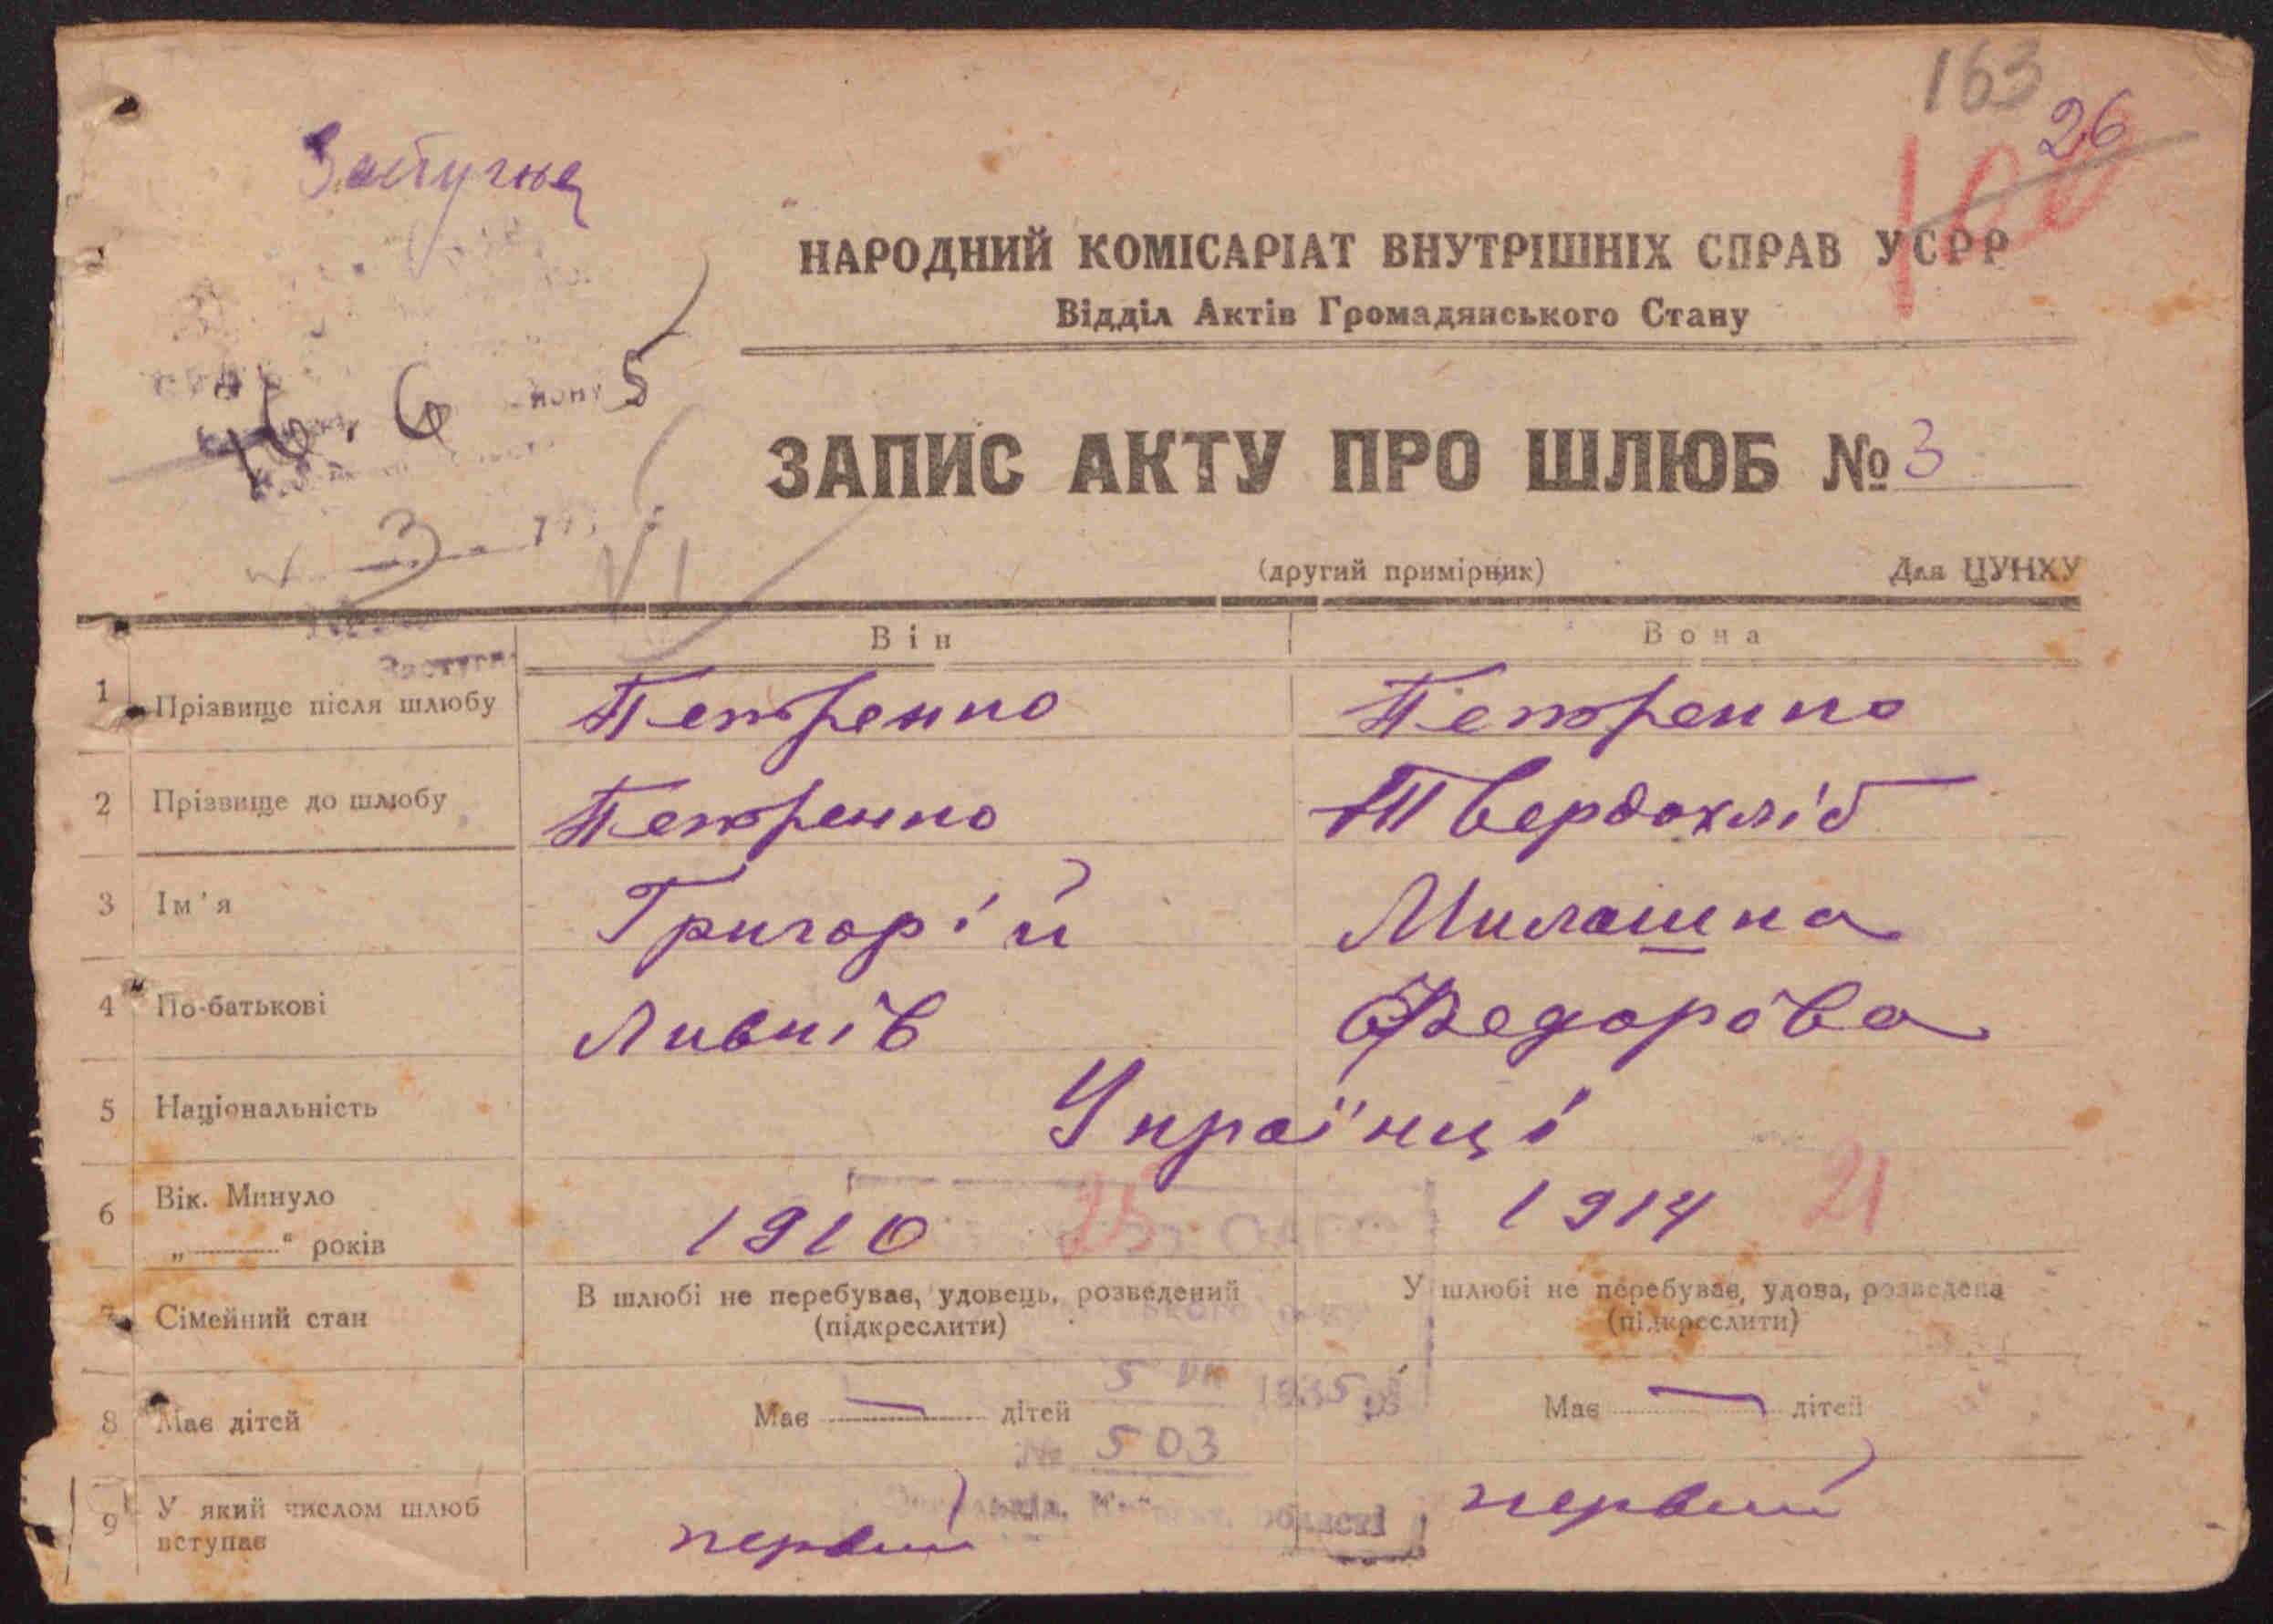 163
26
100
НАРОДНИЙ КОМІСАРІАТ ВНУТРІШНІХ СПРАВ УСРР
Відділ Актів Громадянського Стану
16. 6 5
ЗАПИС АКТУ ПРО ШЛЮБ № 3
3
(другий примірник) Для ЦУНХУ
Він Вона
1 Прізвище після шлюбу Петренко Петренко
2 Прізвище до шлюбу Петренко Твердохліб
3 Ім'я Григорій Милашка
4 По-батькові Федорова
5 Національність Українці
6 Вік. Минуло „ “ років 1910 25 1914 21
7 Сімейний стан В шлюбі не перебував, удовець, розведений (підкреслити) У шлюбі не перебуває, удова, розведена (підкреслити)
5 VII 1935
8 Має дітей Має — дітей Має — дітей
№ 503
9 У який числом шлюб вступає первий первий
області